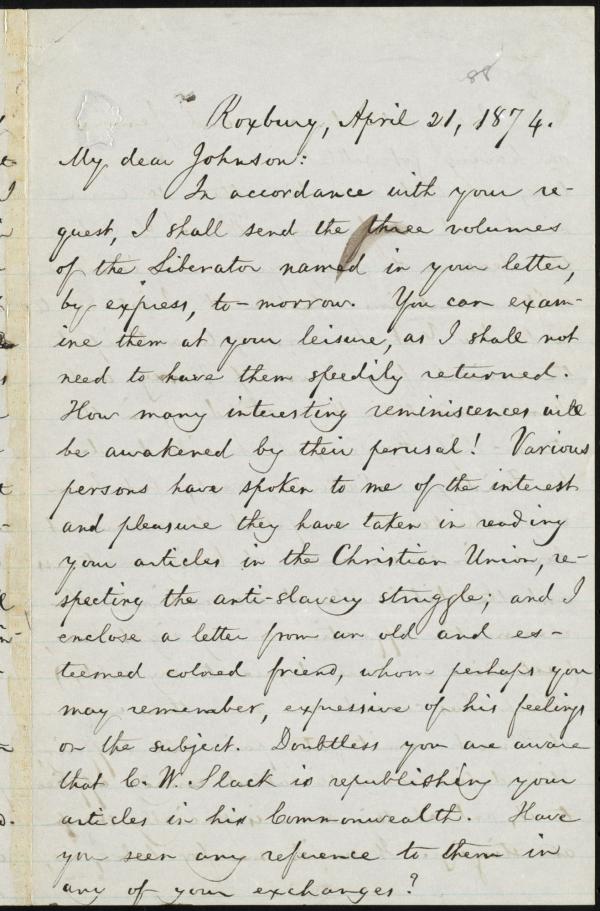 88
Roxbury, April 21, 1874.
My dear Johnson:
In accordance with your re-
quest, I shall send the three volumes
of the Liberator named in your letter,
by express, to-morrow. You can exam-
ine them at your leisure, as I shall not
need to have them speedily returned.
How many interesting reminiscences will
be awakened by their perusal! Various
persons have spoken to me of the interest
and pleasure they have taken in reading
your articles in the Christian Union, re-
specting the anti-slavery struggle; and I
enclose a letter from an old and es-
teemed colored friend, whom perhaps you
may remember, expressive of his feelings
on the subject. Doubtless you are aware
that C. W. Slack is republishing your
articles in his Commonwealth. Have
you seen any reference to them in
any of your exchanges?